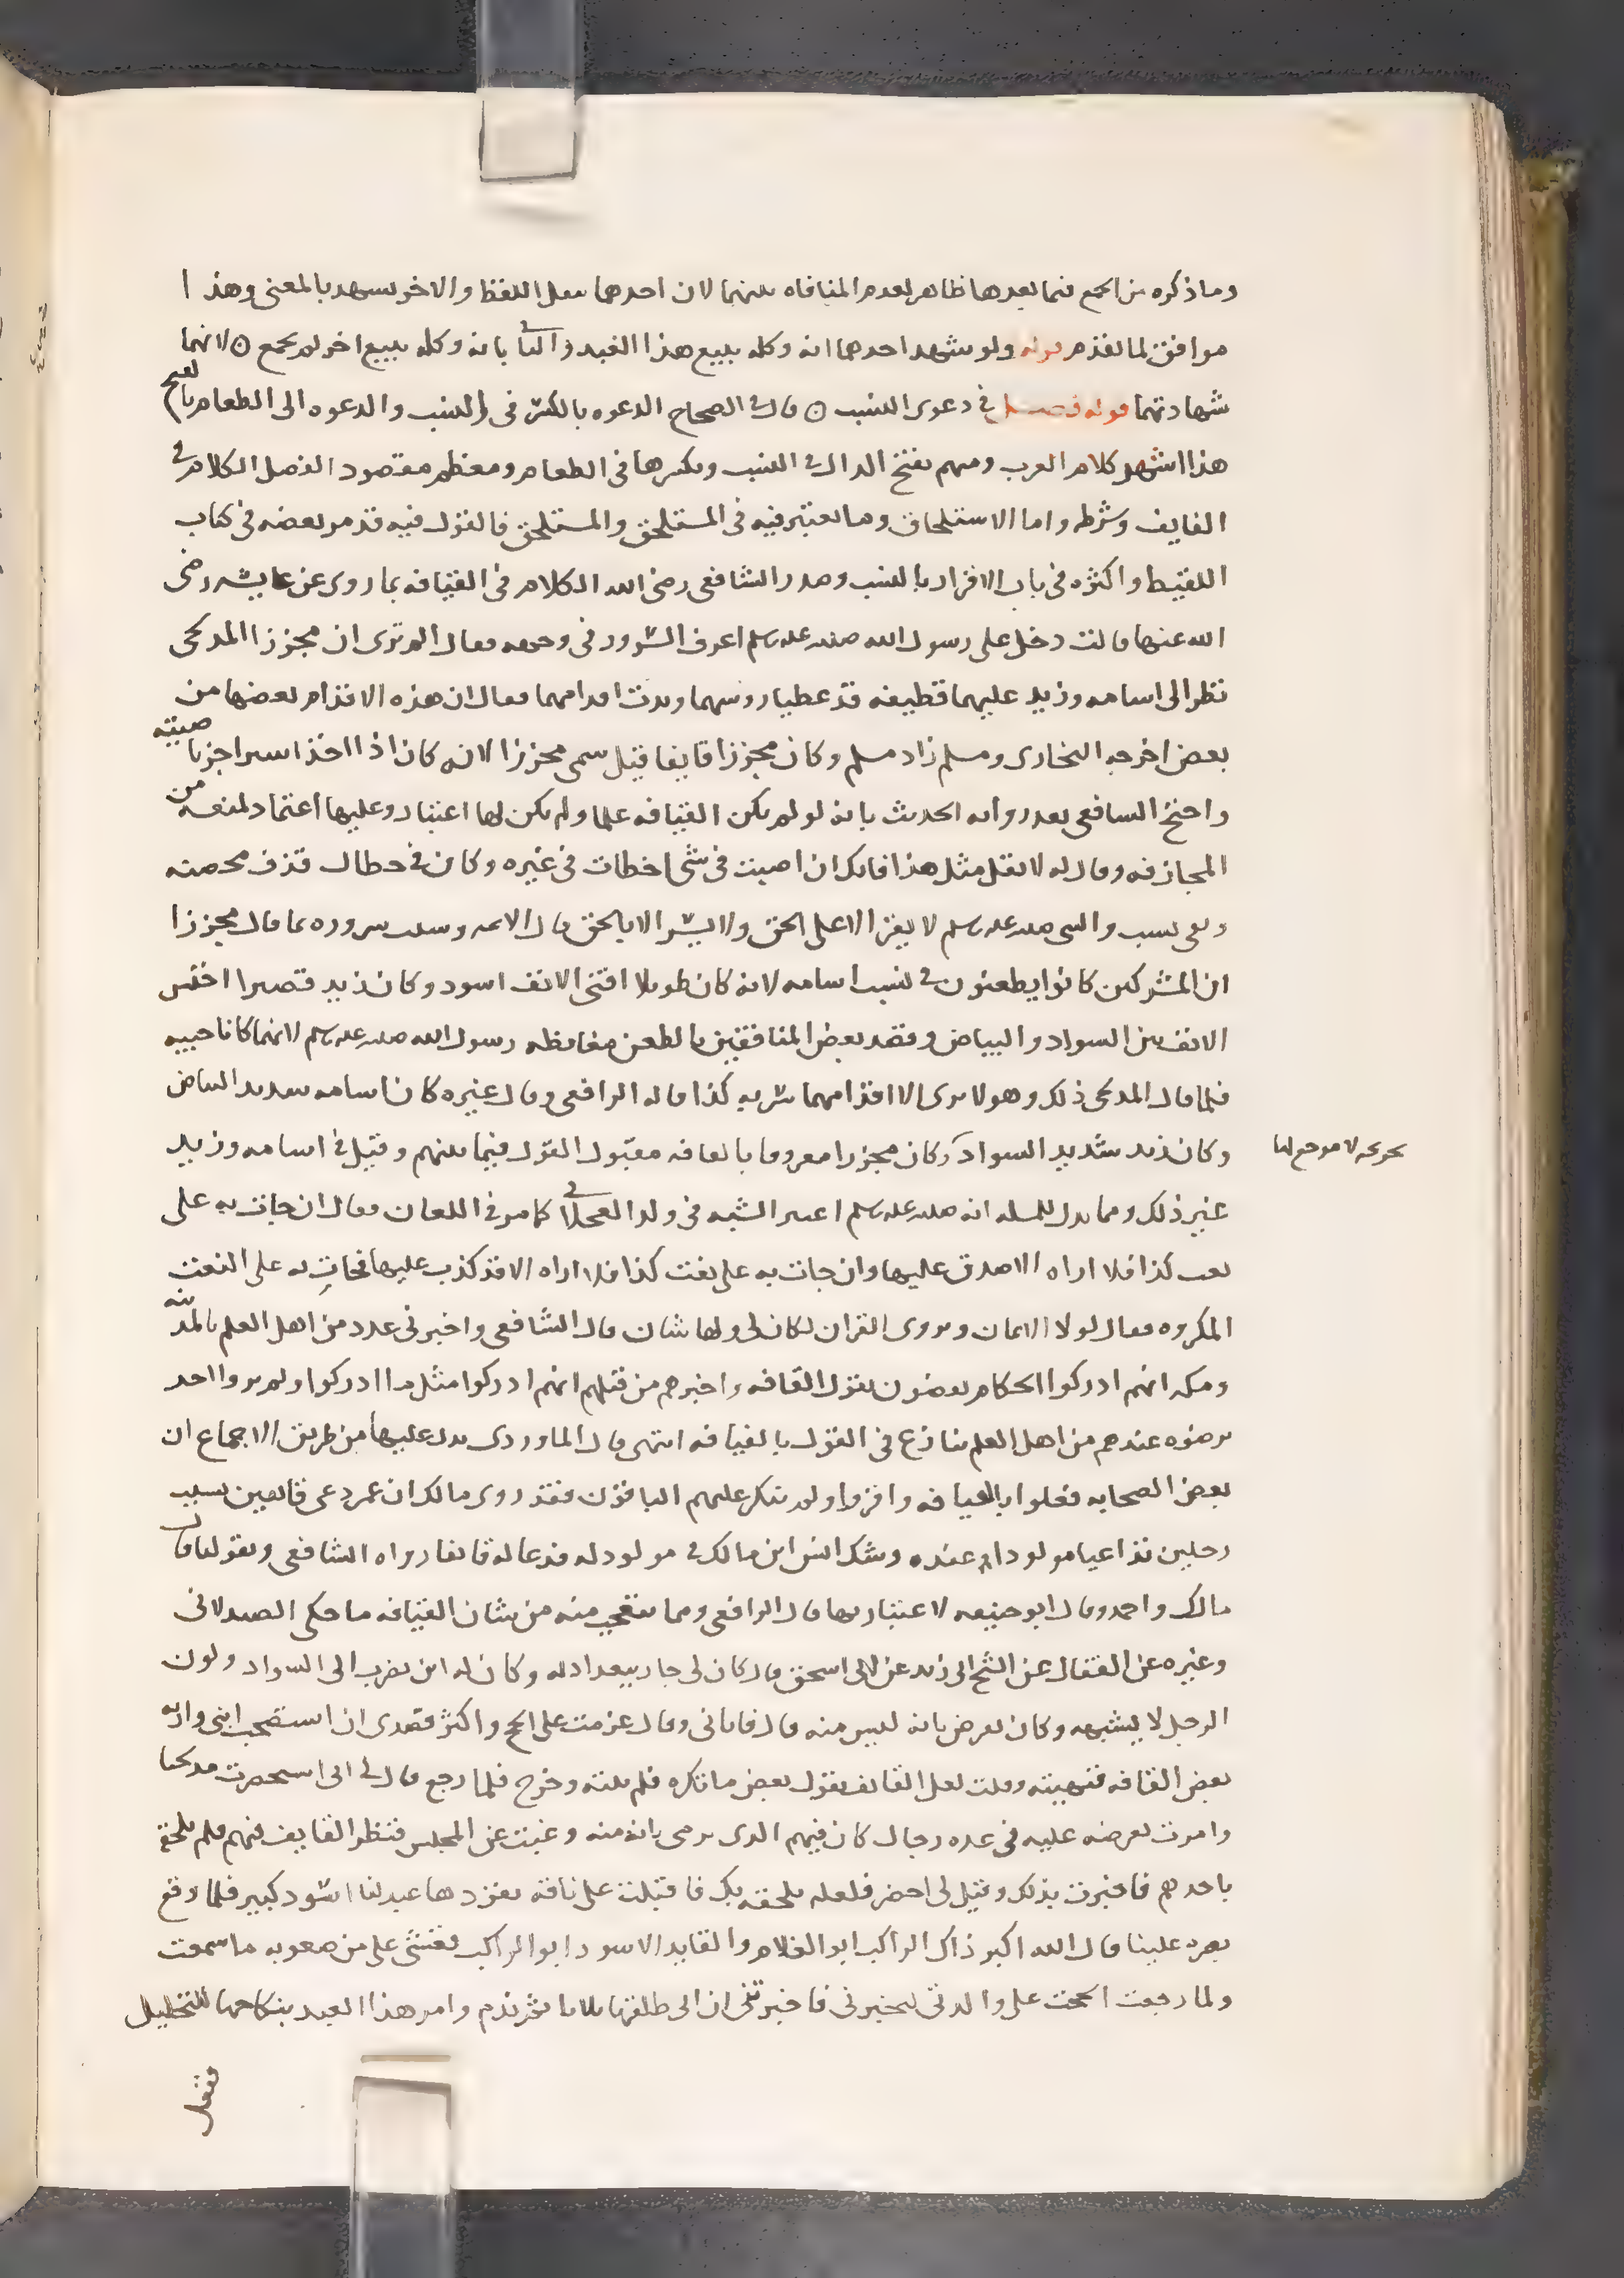 وما ذكره من الجمع فيما بعدها ظاهر لعدم المنافاه بينهما لان احدهما نقل اللفظ والاخر يشهد بالمعنى وهذا
موافق لما تقدم قوله ولو شهد احدهما انه وكله ببيع هذا العبد والثاني بانه وكله ببيع اخر لم يجمع لانهما
شهادتهما قوله فصل في دعوى النسب قال في الصحاح الدعوه بالكسر في النسب والدعوه الى الطعام بالفتح
هذا اشهر كلام العرب ومنهم بفتح الدال في النسب وبكسرها في الطعام ومعظم مقصود الفصل الكلام في
القايف وشرطه واما الاستلحاق وما يعتبر فيه في المستلحق والمستلحق فالقول فيه قد مر بعضه في كتاب
اللقيط واكثره في باب الاقرار بالنسب وصدر الشافعي رضي الله الكلام في القيافه بما روى عن عايشه رضي
الله عنها قالت دخل على رسول الله صلى الله عليه وسلم اعرف السرور في وجهه فقال الم ترى ان مجززا المدلجي
نظر الى اسامه وزيد عليهما قطيفه قد غطيا روسهما وبدت اقدامهما فقال ان هذه الاقدام بعضها من
بعض اخرجه البخاري ومسلم زاد مسلم وكان مجززا قايفا قيل سمي مجززا لانه كان اذا اخذ اسيرا جز ناصيته
واحتج الشافعي بعد روايه الحديث بانه لو لم يكن القيافه علما ولم يكن لها اعتبار وعليها اعتماد لمنعه من
المجازفه وقال له لا تقل مثل هذا فانك ان اصبت في شي اخطات في غيره وكان في خطاك قذف محصنه
ونفي نسب والنبي صلى الله عليه وسلم لا يقر الا على الحق ولا يسر الا بالحق قال الايمه وسبب سروره بما قال مجززا
ان المشركين كانوا يطعنون في نسب اسامه لانه كان طويلا اقنى الانف اسود وكان زيد قصيرا اخنس
الانف بين السواد والبياض وقصد بعض المنافقين بالطعن مغايظه رسول الله صلى الله عليه وسلم لانهما كانا حبيبه
فلما قال المدلجي ذلك وهو لا يرى الا اقدامهما سر به كذا قاله الرافعي وقال غيره كان اسامه شديد البياض
وكان زيد شديد السواد وكان مجززا معروفا بالقافه مقبول القول فيما بينهم وقيل في اسامه وزيد
غير ذلك ومما يدل للمسله انه صلى الله عليه وسلم اعتبر الشبه في ولد العجلاني كما مر في اللعان فقال ان جات به على
نعت كذا فلا اراه الا صدق عليها وان جات به على نعت كذا فلا اراه الا قد كذب عليها فجات به على النعت
المكروه فقال لولا الايمان ويروى القران لكان لي ولها شان قال الشافعي واخبرني عدد من اهل العلم بالمدينه
ومكه انهم ادركوا الحكام يقضون بقول القافه واخبرهم من قبلهم انهم ادركوا مثل ما ادركوا ولم يروا احد
يرضوه عندهم من اهل العلم نازع في القول بالقيافه انتهى قال الماوردي يدل عليها من طريق الاجماع ان
بعض الصحابه فعلوا بالقيافه واقروا ولم ينكر عليهم الباقون فقد روى مالك ان عمر دعى قايفين بسبب
رجلين تداعيا مولودا عنده وشك انس ابن مالك في مولود له فدعا له قايفا رواه الشافعي وبقولنا قال
مالك واحمد وقال ابو حنيفه لا اعتبار بها قال الرافعي ومما يتعجب منه من شان القيافه ما حكى الصيدلاني
وغيره عن القفال عن الشيخ ابي زيد عن ابي اسحق قال كان لي جار ببغداد له وكان له ابن يضرب الى السواد ولون
الرجل لا يشبهه وكان يعرض بانه ليس منه قال فاتاني وقال عزمت على الحج واكثر قصدي ان استصحب ابني واريه
بعض القافه فنهيته وقلت لعل القايف يقول بعض ما تكره فلم ينته وخرج فلما رجع قال لي اني استحضرت مدلجيا
وامرت بعرضه عليه في عده رجال كان فيهم الذي يرمى بانه منه وغبت عن المجلس فنظر القايف فيهم فلم يلحقه
باحدهم فاخبرت بذلك وقيل لي احضر فلعله يلحقه بك فاقبلت على ناقه يقودها عبد لنا اسود كبير فلما وقع
بصره علينا قال الله اكبر ذاك الراكب ابو الغلام والقايد الاسود ابو الراكب فغشي علي من صعوبه ما سمعت
ولما رجعت الححت على والدتي لتخبرني فاخبرتني ان ابي طلقها ثلاثا ثم ندم وامر هذا العبد بنكاحها للتحليل
ففعل